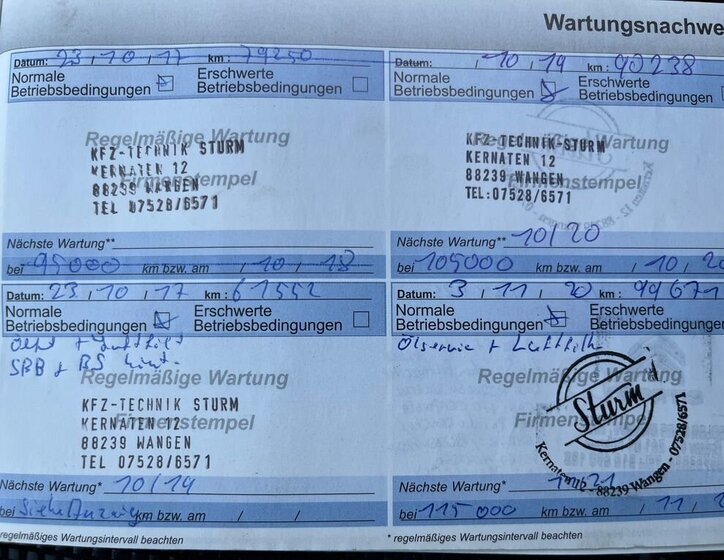 Wartungsnachwe
Datum: 23, 10, 17 km: 79250
Normale Betriebsbedingungen
Erschwerte Betriebsbedingungen
Regelmäßige Wartung
Firmenstempel
KFZ-TECHNIK STURM
KERNATEN 12
88239 WANGEN
TEL 07528/6571
Nächste Wartung**
bei 95000 km bzw. am / 10 / 18
Datum: , 10, 19 km: 90238
Normale Betriebsbedingungen
Erschwerte Betriebsbedingungen
Regelmäßige Wartung
Firmenstempel
KFZ-TECHNIK-STURM
KERNATEN 12
88239 WANGEN
TEL:07528/6571
Nächste Wartung** 10/20
bei 105000 km bzw. am / 10, 20
Datum: 23, 10, 17 km: 61552
Normale Betriebsbedingungen
Erschwerte Betriebsbedingungen
SRB + BS
Regelmäßige Wartung
Firmenstempel
KFZ-TECHNIK STURM
KERNATEN 12
88239 WANGEN
TEL 07528/6571
Nächste Wartung* 10/19
bei Siehe Anzeig km bzw. am / /
* regelmäßiges Wartungsintervall beachten
Datum: 3 / 11, 20 km: 99671
Normale Betriebsbedingungen
Erschwerte Betriebsbedingungen
Ölservice + Luftfilt
Regelmäßige Wartung
Firmenstempel
Sturm
Kernaten 12 - 88239 Wangen - 07528/6571
Nächste Wartung* 21
bei 115000 km bzw. am / 11, 2
* regelmäßiges Wartungsintervall beachten